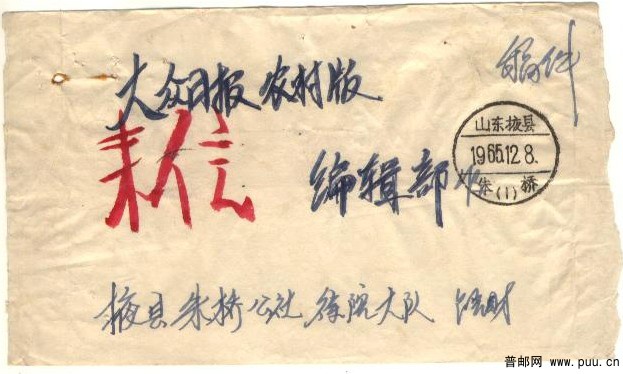 稿件
大众日报 农村版
来信
编辑部收
山东掖县
1965.12.8.
朱(1)桥
掖县朱桥公社 徐院大队
普邮网 www.puu.cn